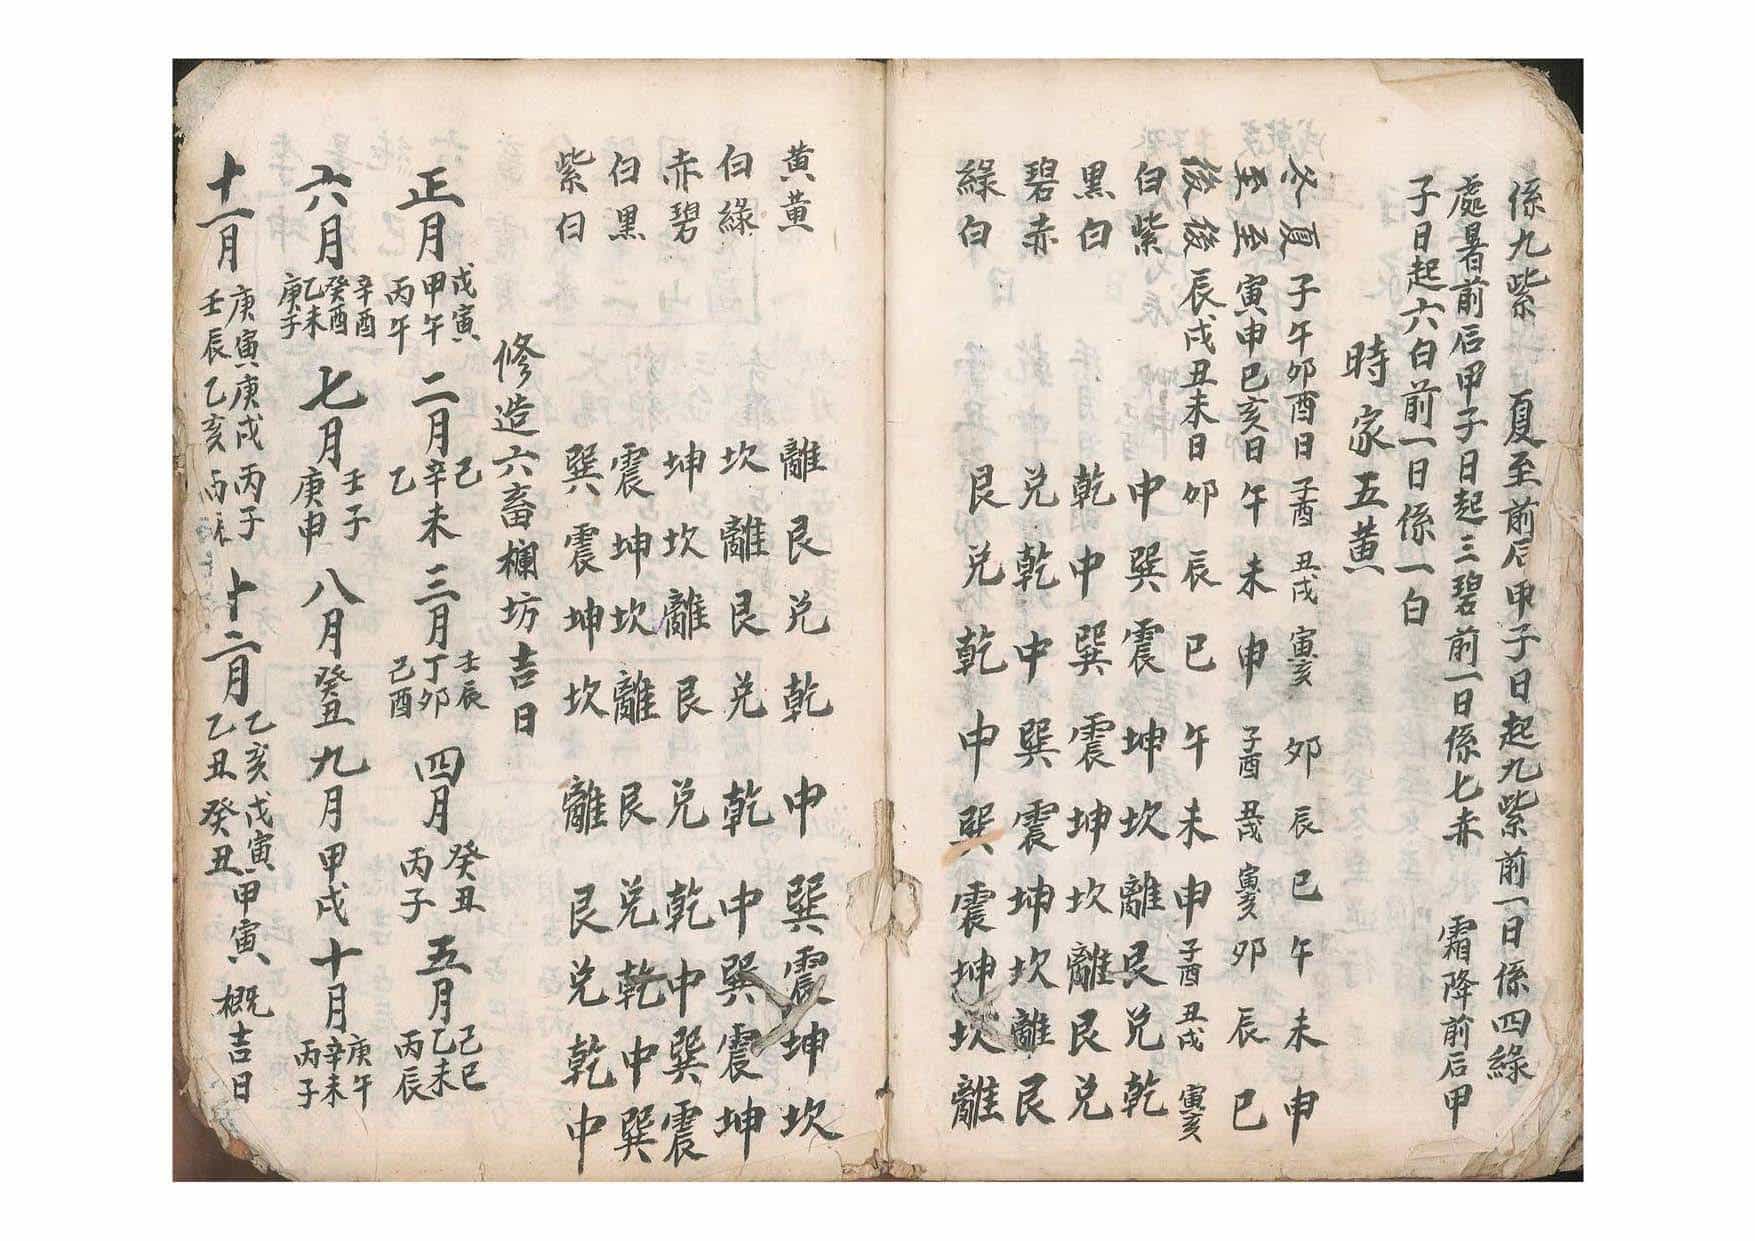 係九紫 夏至前后甲子日起九紫前一日係四綠
處暑前后甲子日起三碧前一日係七赤 霜降前后甲
子日起六白前一日係一白
時家五黃
冬夏 子午卯酉日 子酉 丑戌 寅亥 卯 辰 巳 午 未 申
至至 寅申巳亥日 午 未 申 子酉 丑戌 寅亥 卯 辰 巳
後後 辰戌丑未日 卯 辰 巳 午 未 申 子酉 丑戌 寅亥
白紫 中 巽 震 坤 坎 離 艮 兌 乾
黑白 乾 中 巽 震 坤 坎 離 艮 兌
碧赤 兌 乾 中 巽 震 坤 坎 離 艮
綠白 艮 兌 乾 中 巽 震 坤 坎 離
黃黃 離 艮 兌 乾 中 巽 震 坤 坎
白綠 坎 離 艮 兌 乾 中 巽 震 坤
赤碧 坤 坎 離 艮 兌 乾 中 巽 震
白黑 震 坤 坎 離 艮 兌 乾 中 巽
紫白 巽 震 坤 坎 離 艮 兌 乾 中
修造六畜欄坊吉日
正月 戊寅 甲午 丙午 二月 己 辛未 乙 三月 壬辰 丁卯 己酉 四月 癸丑 丙子 五月 己巳 乙未 丙辰
六月 辛酉 癸酉 乙未 庚子 七月 壬子 庚申 八月 癸丑 九月 甲戌 十月 庚午 辛未 丙子
十一月 庚寅 庚戌 丙子 壬辰 乙亥 丙 十二月 乙亥 戊寅 甲寅 乙丑 癸丑 概吉日